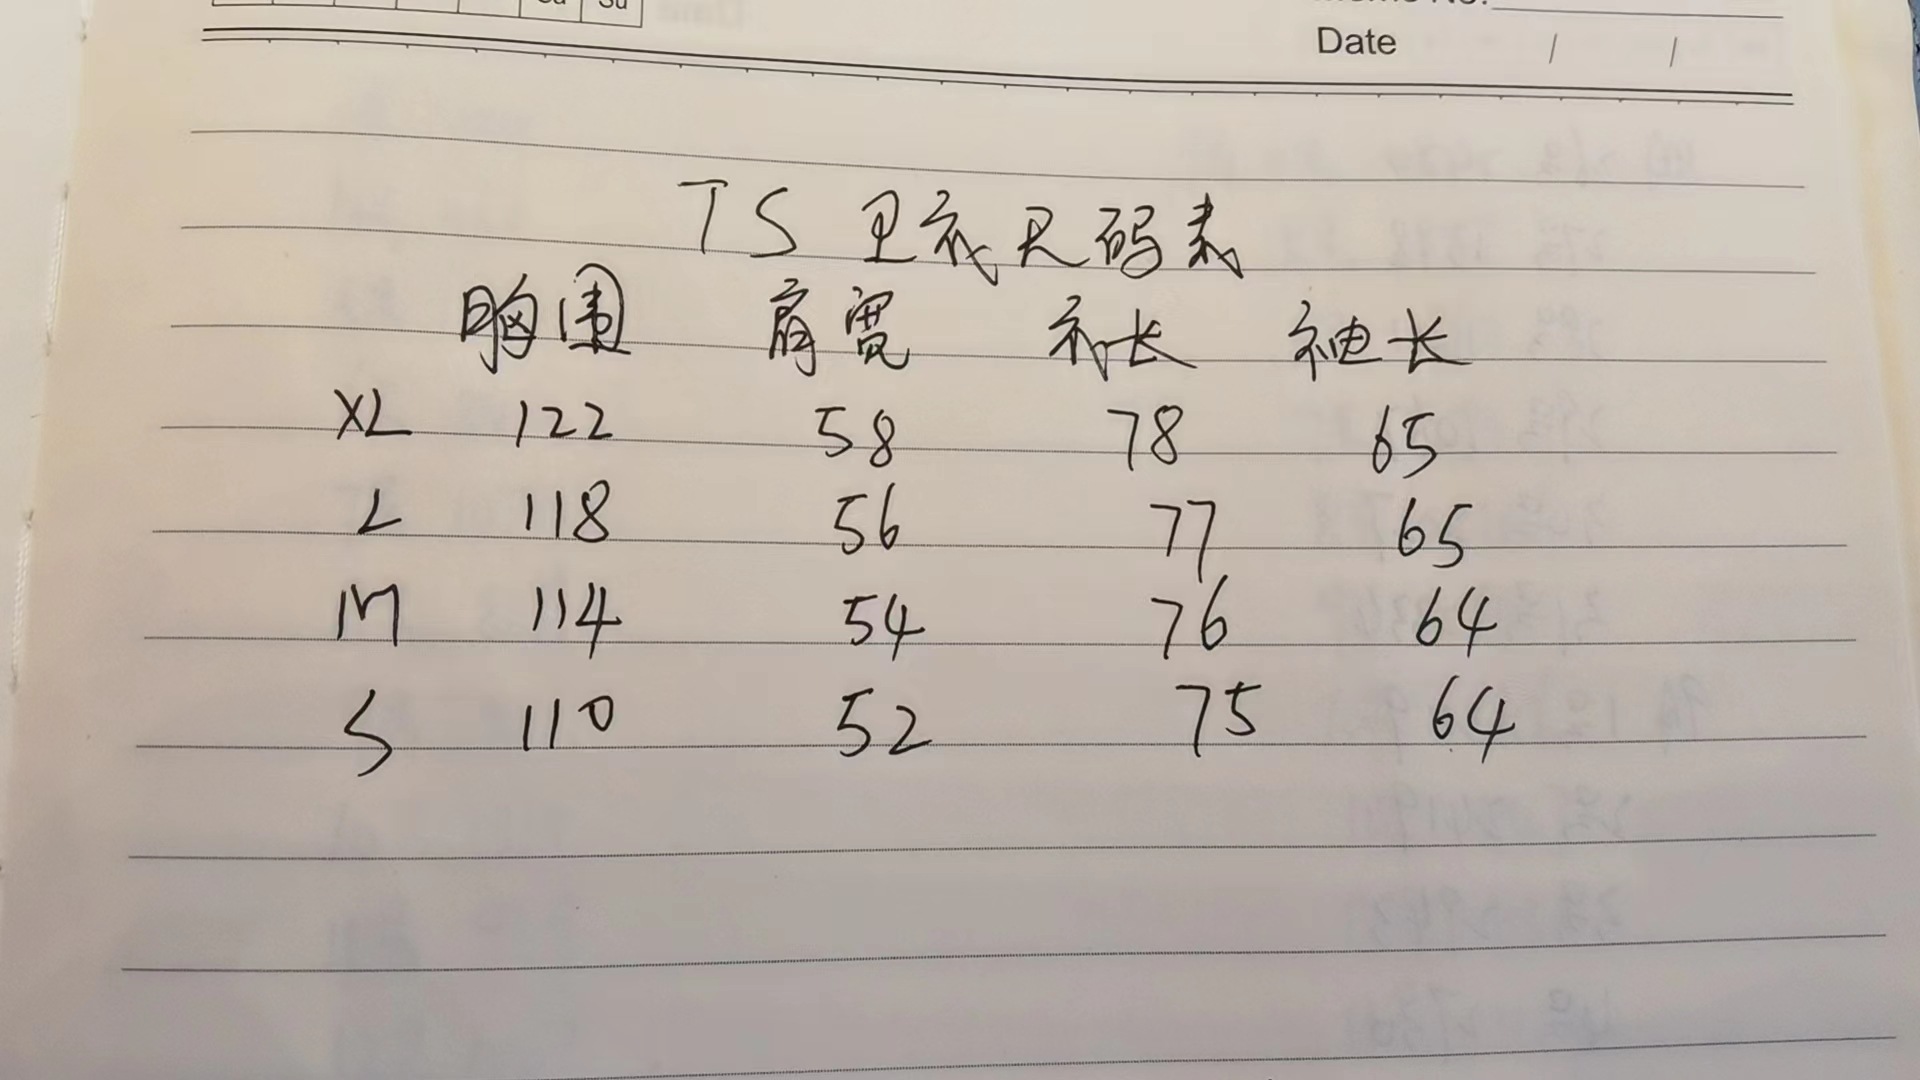 Su
Date / /
TS 卫衣尺码表
胸围 肩宽 衣长 袖长
XL 122 58 78 65
L 118 56 77 65
M 114 54 76 64
S 110 52 75 64